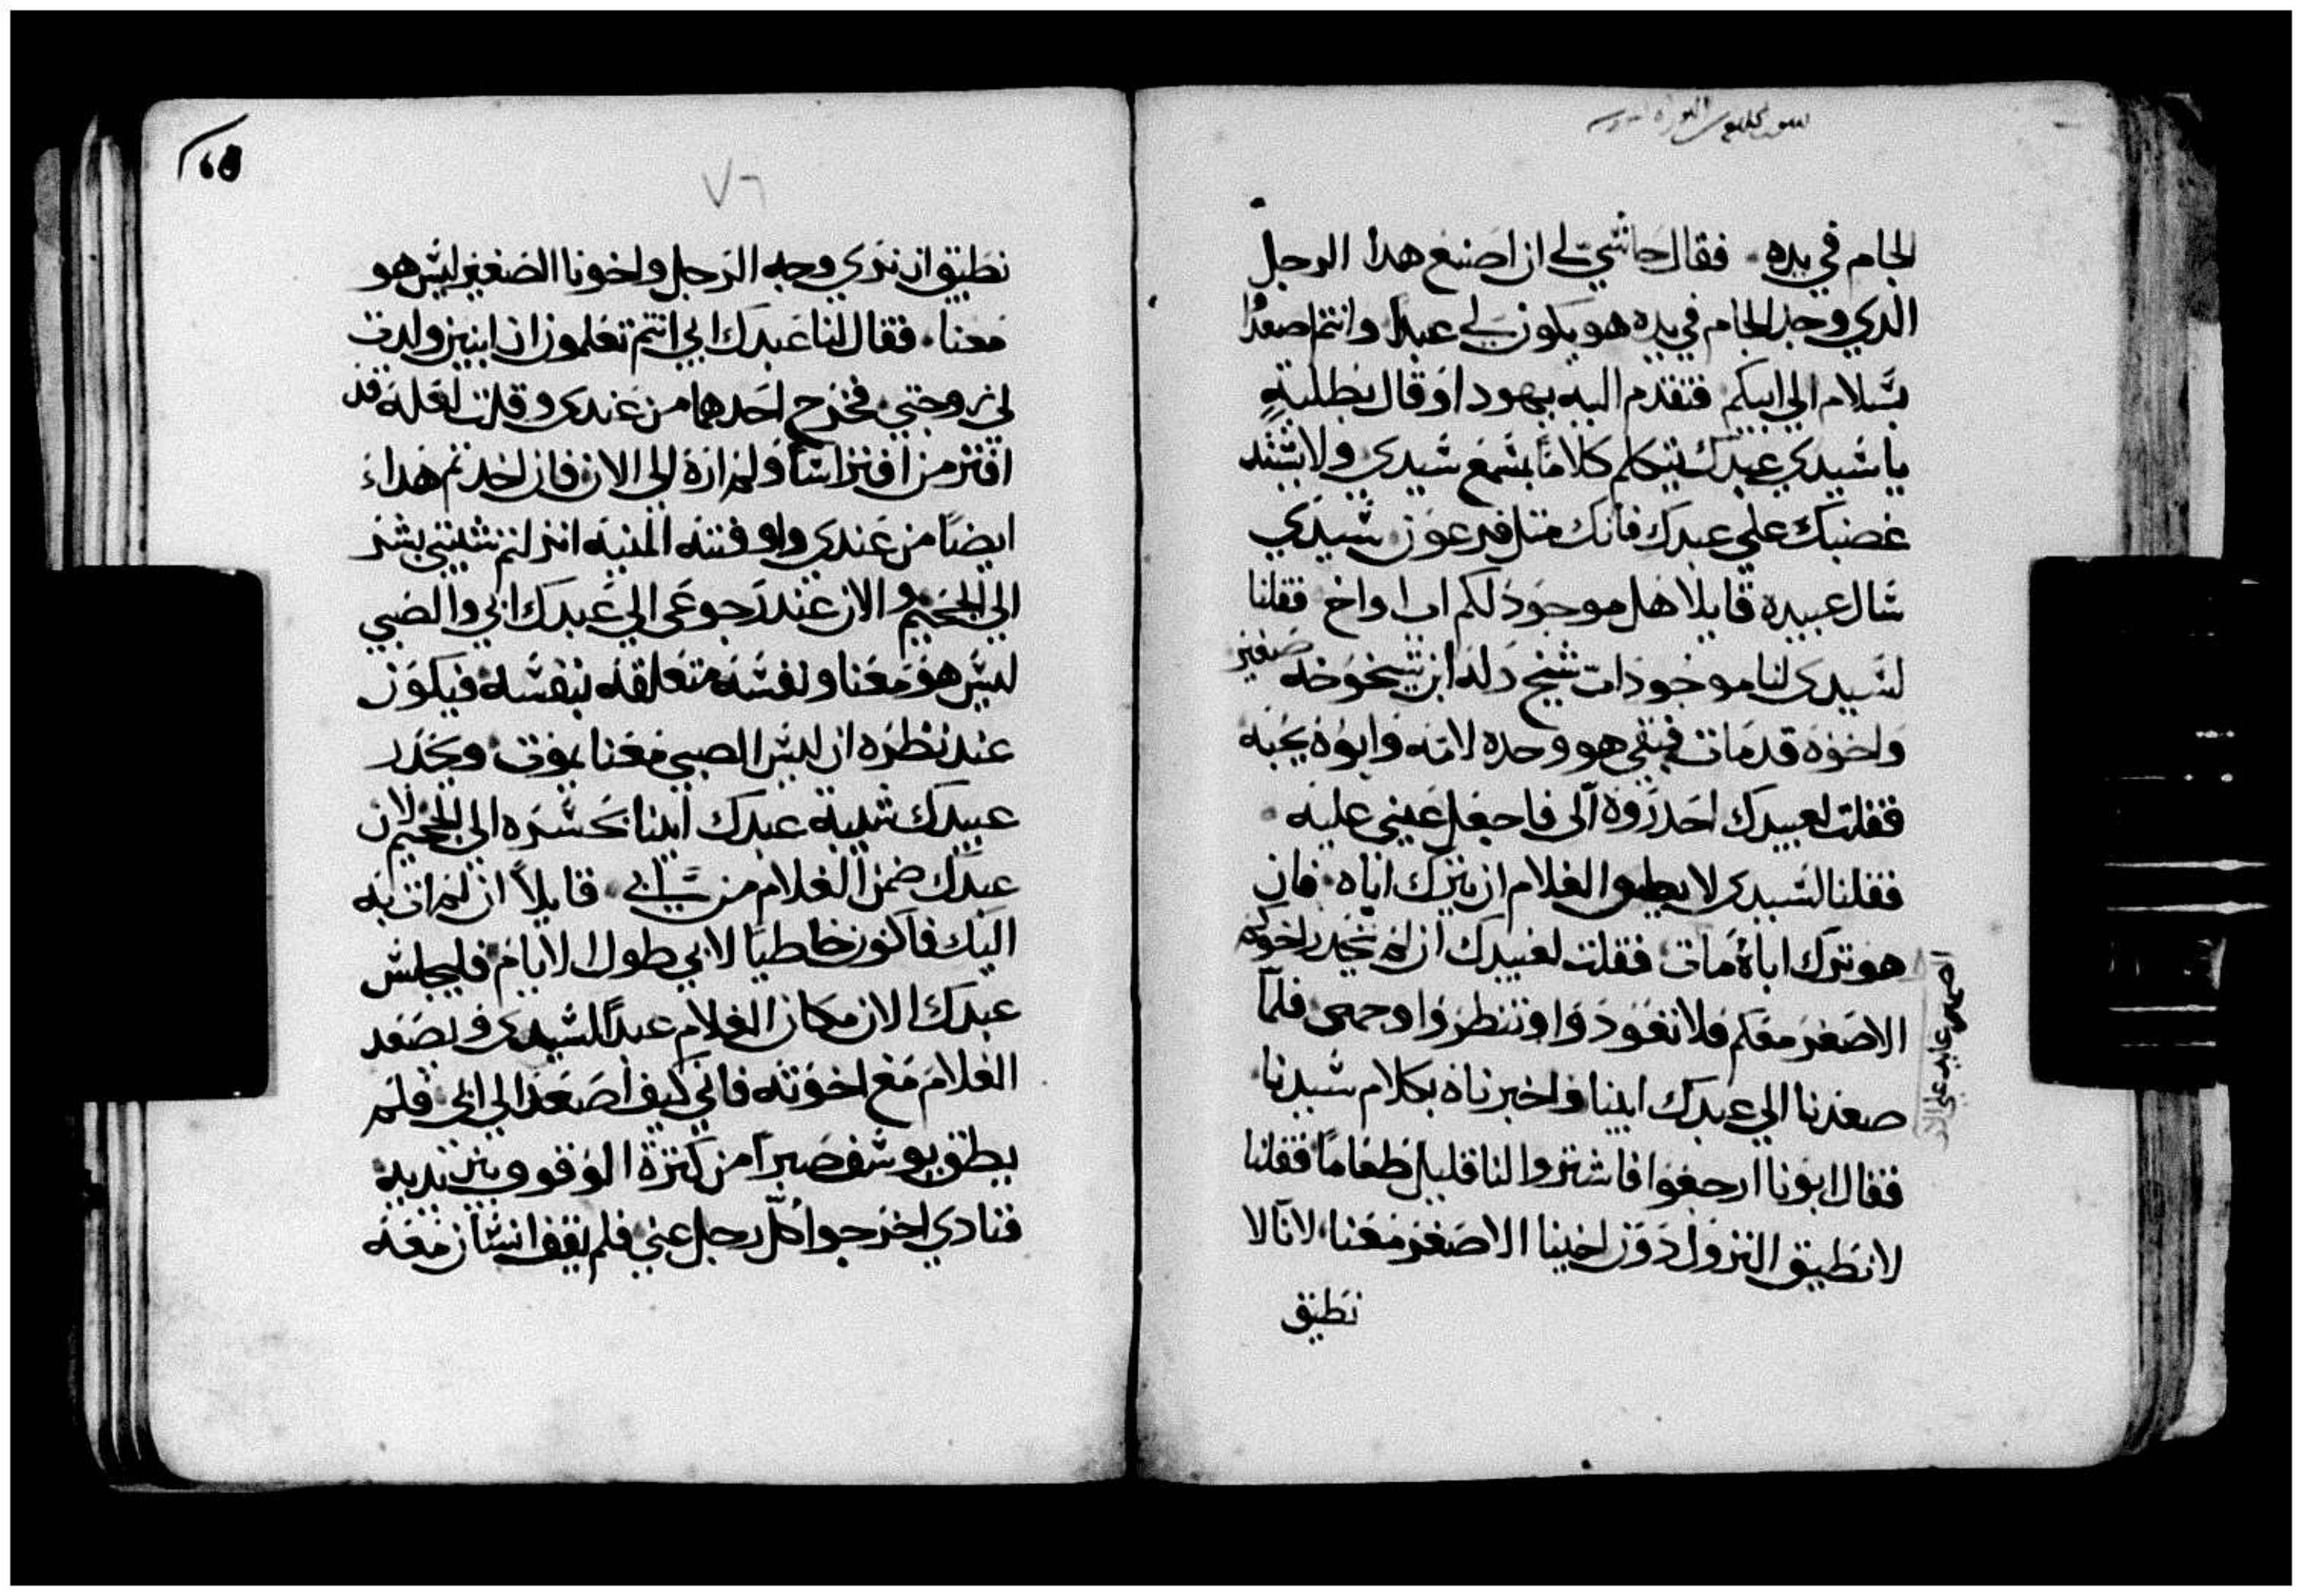 الجام في يده. فقال حاشي لي ان اصنع هدا الرجل
الدي وجد الجام في يده هو يكون لي عبدا وانتم اصعدوا
بسلام الي ابيكم فتقدم اليه يهودا وقال بطلبةٍ
يا سيدي عبدك يتكلم كلامًا بسمع سيدي ولا يشتد
غضبك علي عبدك فانك متل فرعون سيدي
سال عبيده قايلا هل موجود لكم اب او اخ فقلنا
لسيدي لنا موجود اب شيخ وله ابن شيخوخه صغير
واخوه قد مات فبقي هو وحده لامه وابوه يحبه
فقلت لعبيدك احدروه الي فاجعل عيني عليه
فقلنا لسيدي لا يطيق الغلام ان يترك اباه فان
هو ترك اباه مات فقلت لعبيدك ان لم ينحدر اخوكم
الاصغر معكم فلا تعودوا وتنظروا وجهي فلما
صعدنا الي عبدك ابينا واخبرناه بكلام سيدنا
فقال ابونا ارجعوا فاشتروا لنا قليل طعاما فقلنا
لا نطيق النزول دون اخينا الاصغر معنا لانا لا
نطيق
٧٦
نطيق ان نري وجه الرجل واخونا الصغير ليس هو
معنا. فقال لنا عبدك ابي انتم تعلمون ان ابنين ولدت
لي زوجتي فخرج احدهما من عندي وقلت لعله قد
افترس افتراسا ولم اره الي الان فان اخدتم هدا
ايضًا من عندي وافته المنيه انزلتم شيبتي بشر
الي الجحيم والان عند رجوعي الي عبدك ابي والصبي
ليس هو معنا ونفسه متعلقه بنفسه فيكون
عند نظره ان ليس الصبي معنا يموت ويحدر
عبيدك شيبة عبدك ابينا بحسره الي الجحيم لان
عبدك ضمن الغلام من ابي قايلاً ان لم ات به
اليك فاكون خاطيا لابي طول الايام فليجلس
عبدك الان مكان الغلام عبدًا لسيدي ويصعد
الغلام مع اخوته فاني كيف اصعد الي ابي فلم
يطق يوسف صبرا من كترة الوقوف بين يديه
فنادي اخرجوا كل رجل عني فلم يقف انسان معه